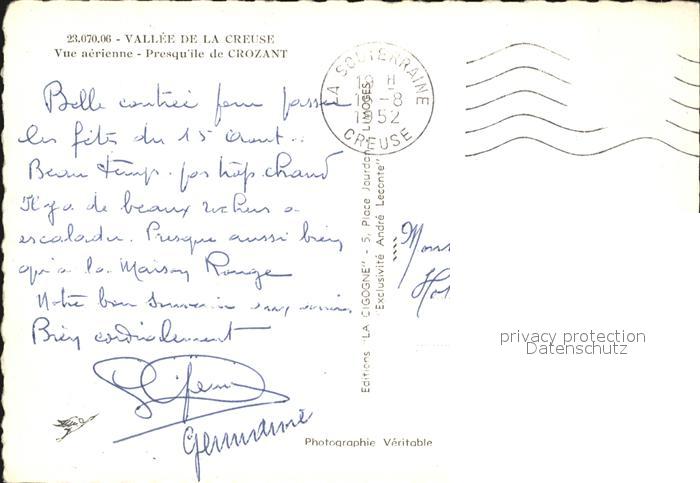 23.070.06 - VALLÉE DE LA CREUSE
Vue aérienne - Presqu'île de CROZANT
Belle contrée pour passer
les fêtes du 15 août..
Beau temps. pas trop chaud
Il y a de beaux rochers a
escalader. Presque aussi bien
qu'a la Maison Rouge
Notre bon souvenir
Bien cordialement
Germaine
LA SOUTERRAINE
18 H
-8
1952
CREUSE
Editions "LA CIGOGNE" - 5, Place Jourdan - LIMOGES
Exclusivité André Leconte"
Photographie Véritable
privacy protection
Datenschutz